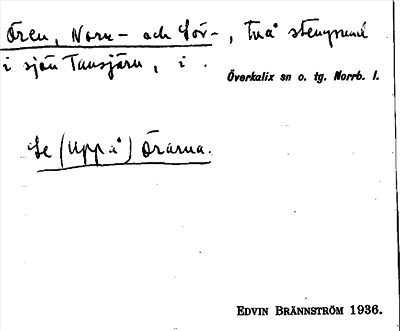 Ören, Norr- och Sör-, två stengrund
i sjön Tansjärn, i.
Överkalix sn o. tg. Norrb. l.
Se (Uppå) Örarna.
EDVIN BRÄNNSTRÖM 1936.